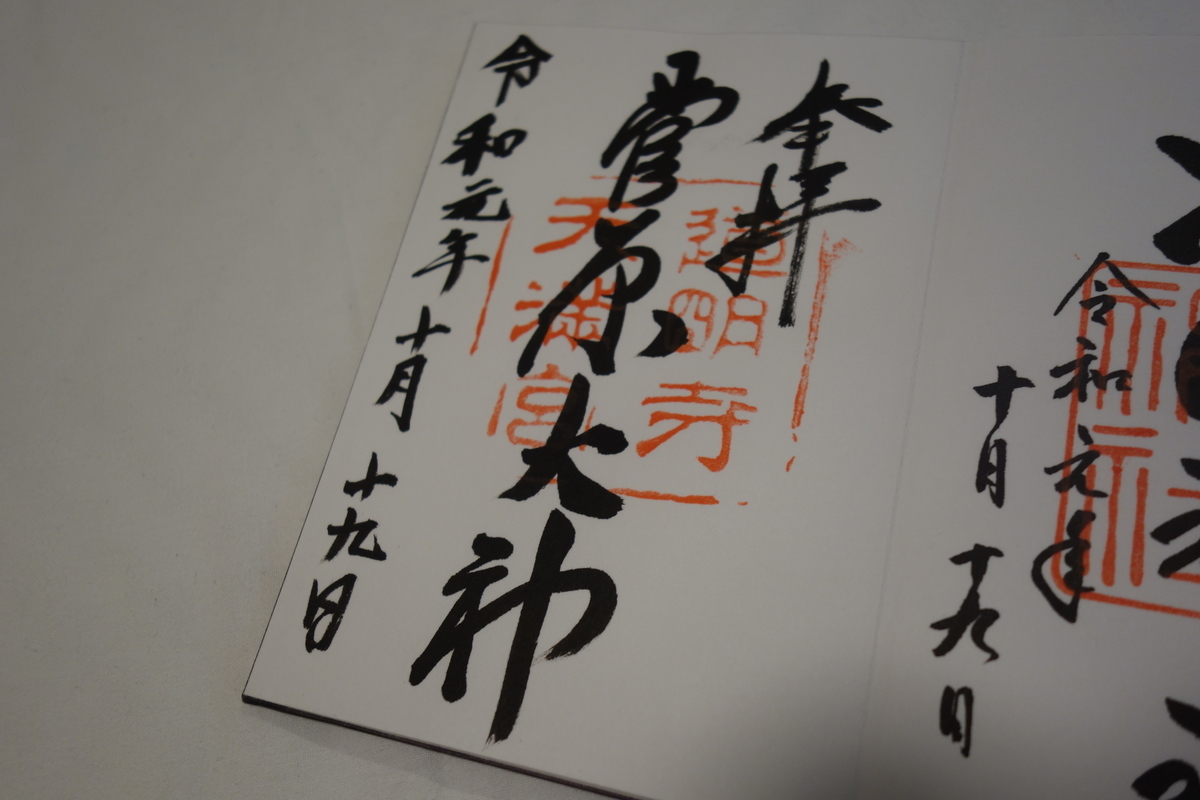 令和元年
十月十九日
奉拝
道明寺
天満宮
菅原大神
令和元年十月十九日